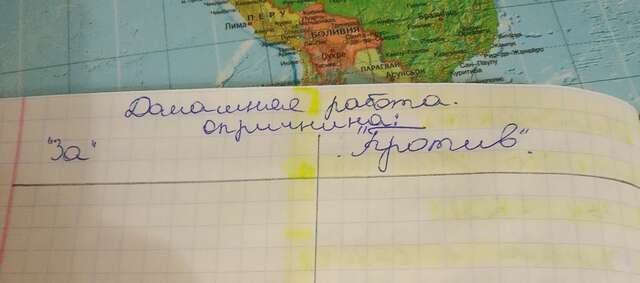 ПЕРУ
Лима
БОЛИВИЯ
Сукре
ПАРАГВАЙ
Асунсьон
Куритиба
Домашняя работа.
опричнина:
"За" "Против".